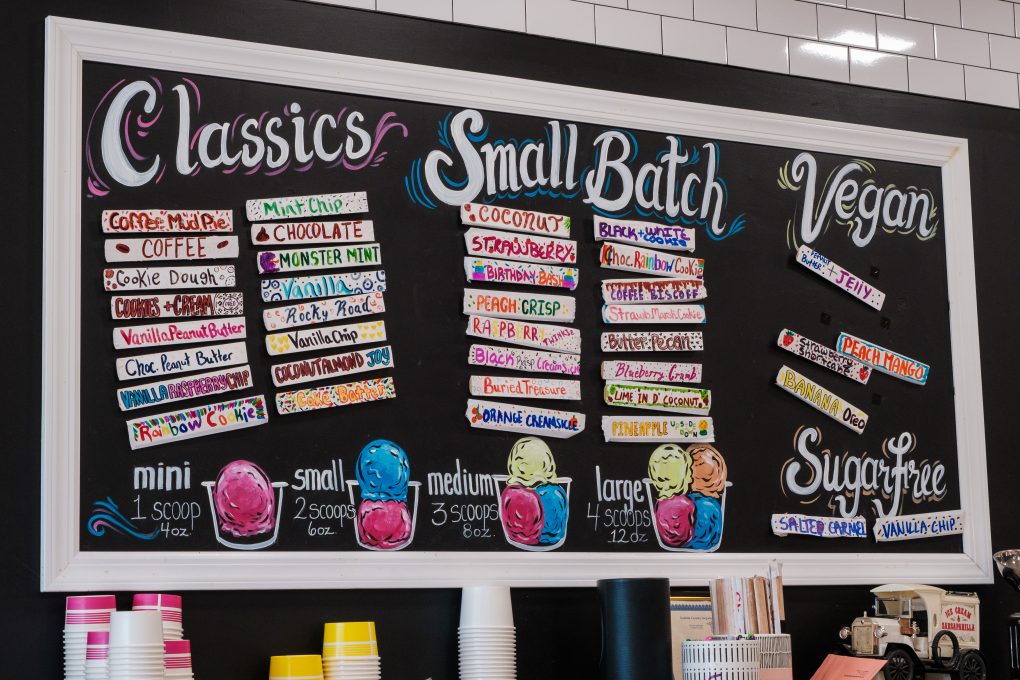 Classics
Coffee Mud Pie
COFFEE
Cookie Dough
COOKIES + CREAM
Vanilla Peanut Butter
Choc Peanut Butter
VANILLA RASPBERRY CHIP
Rainbow Cookie
Mint Chip
CHOCOLATE
MONSTER MINT
Vanilla
Rocky Road
Vanilla Chip
COCONUT ALMOND JOY
Cake Batter
Small Batch
COCONUT
STRAWBERRY
BIRTHDAY BASH
PEACH CRISP
RASPBERRY TWINKLE
Black Rasp Creamsicle
Buried Treasure
ORANGE CREAMSICLE
BLACK + WHITE
COOKIE
Choc Rainbow Cookie
COFFEE BISCOFF
Straw Marsh Cookie
Butter Pecan
Blueberry Crumb
LIME IN D' COCONUT
PINEAPPLE UPSIDE
DOWN
Vegan
PEANUT
BUTTER + JELLY
STRAWBERRY
Shortcake
PEACH MANGO
BANANA Oreo
Sugar Free
SALTED CARAMEL
VANILLA CHIP
mini
1 SCOOP
4oz.
small
2 SCOOPS
6oz.
medium
3 SCOOPS
8oz.
large
4 SCOOPS
12 oz
ICE CREAM &
SARSAPARILLA